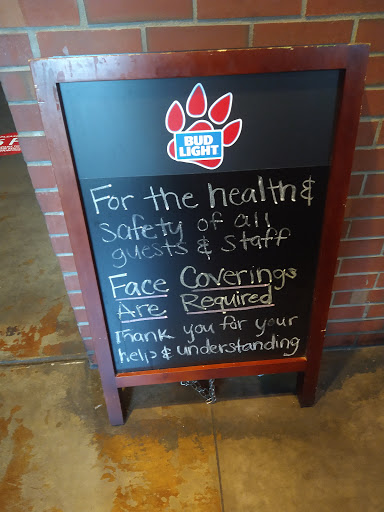 BUD
LIGHT
For the health &
safety of all
guests & staff
Face Coverings
Are Required
Thank you for your
help & understanding